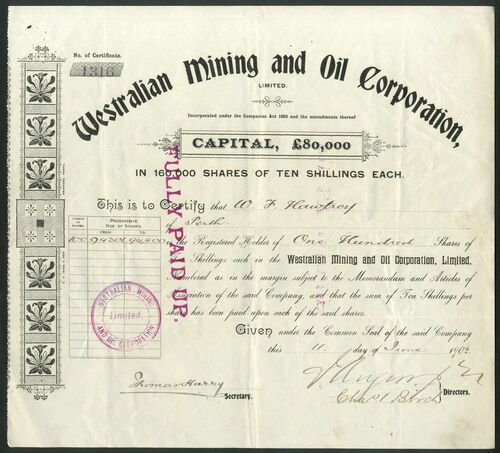 No. of Certificate.
1316
Westralian Mining and Oil Corporation,
LIMITED.
Incorporated under the Companies Act 1893 and the amendments thereof
CAPITAL, £80,000
IN 160,000 SHARES OF TEN SHILLINGS EACH.
This is to Certify that W. F. Hawtrey
of Perth
NUMBER OF SHARES.
PROGRESSIVE NOS OF SHARES.
FROM TO
100
is the Registered Holder of One Hundred Shares of
Shillings each in the Westralian Mining and Oil Corporation, Limited,
numbered as in the margin subject to the Memorandum and Articles of
Association of the said Company, and that the sum of Ten Shillings per
share has been paid upon each of the said shares.
Given under the Common Seal of the said Company
this 11 day of June 1902.
FULLY PAID UP.
WESTRALIAN MINING
Limited.
AND OIL CORPORATION
Thomas Harry
Secretary.
Chas
Directors.